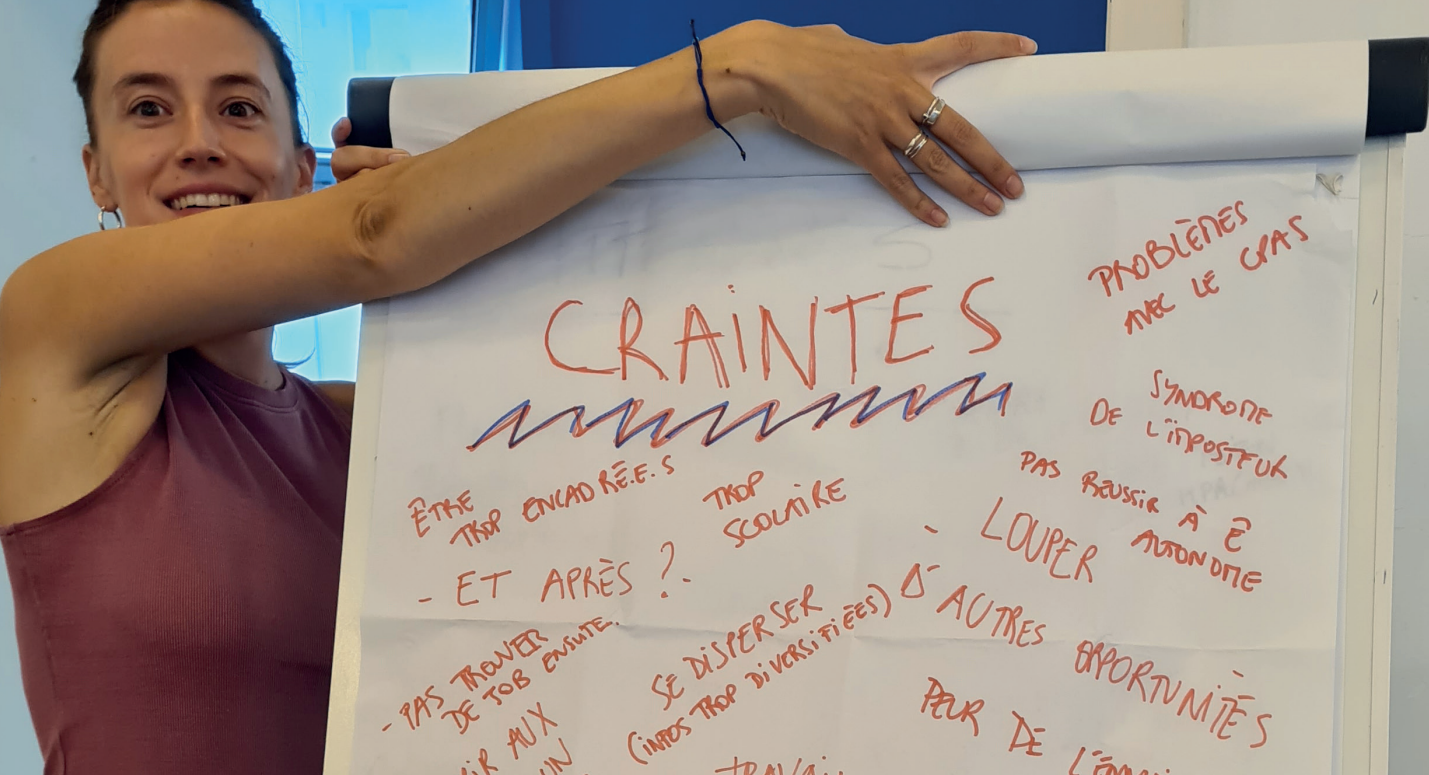 CRAINTES
PROBLÈMES
AVEC LE CPAS
SYNDROME
DE L'IMPOSTEUR
ÊTRE
TROP ENCADRÉ.E.S
TROP
SCOLAIRE
PAS RÉUSSIR À Ê
AUTONOME
- ET APRÈS ?
- LOUPER
D'AUTRES OPPORTUNITÉS
- PAS TROUVER
DE JOB ENSUITE.
SE DISPERSER
(INFOS TROP DIVERSIFIÉES)
PEUR DE
AUX
UN